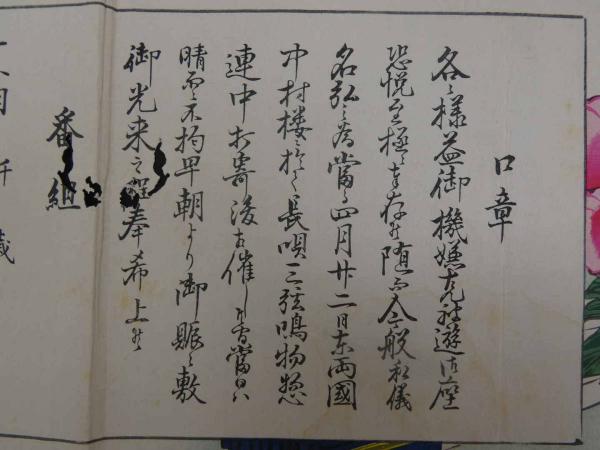 口章
各々様益御機嫌克被遊御座
恐悦至極ニ奉存候随而今般私儀
名弘之為當ル四月廿二日東両國
中村楼ニ於て長唄三弦鳴物惣
連中打寄浚相催し候間當日ハ
晴雨ニ不拘早朝より御賑々敷
御光来之程奉希上候
番組
千歳